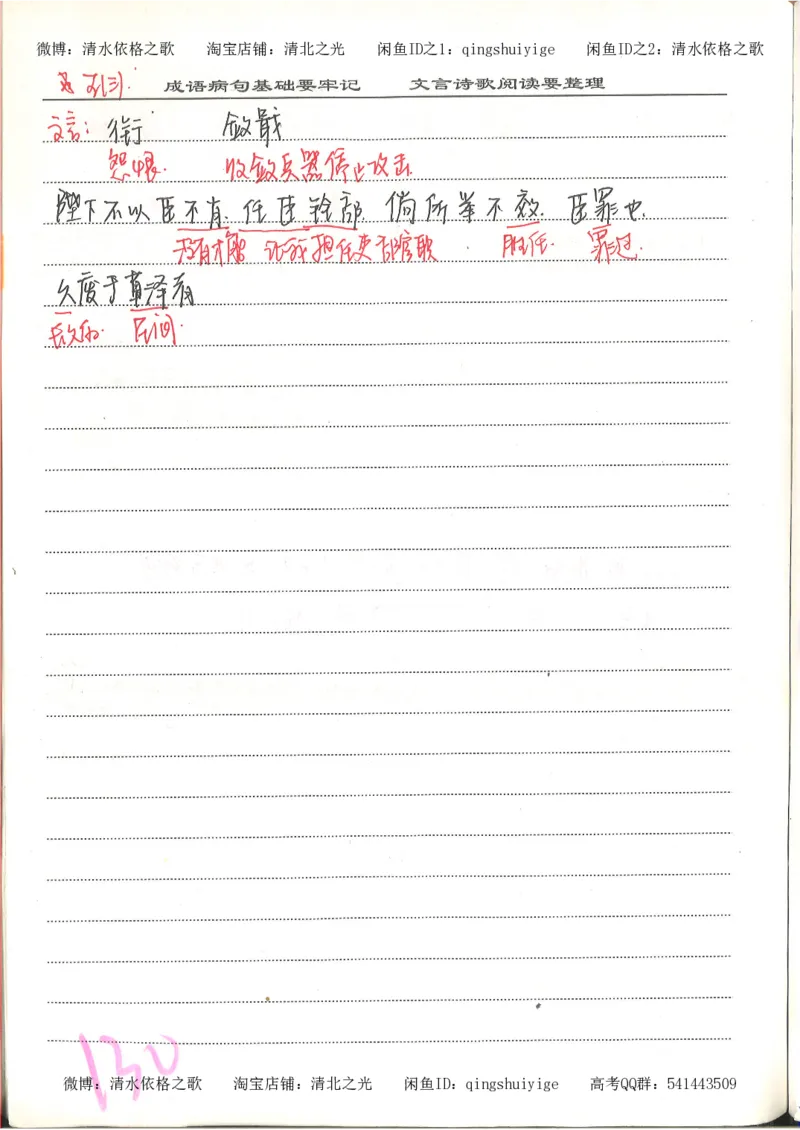 微博：清水依格之歌 淘宝店铺：清北之光 闲鱼ID之1：qingshuiyige 闲鱼ID之2：清水依格之歌
成语病句基础要牢记 文言诗歌阅读要整理
文言：衔 敛戢
怨恨. 收敛兵器停止攻击
陛下不以臣不肖.任臣铨部.倘所举不效.臣罪也.
没有才能 让我担任吏部官职. 胜任. 罪过.
久废于草泽者
长久的. 民间.
130
微博：清水依格之歌 淘宝店铺：清北之光 闲鱼ID：qingshuiyige 高考QQ群：541443509